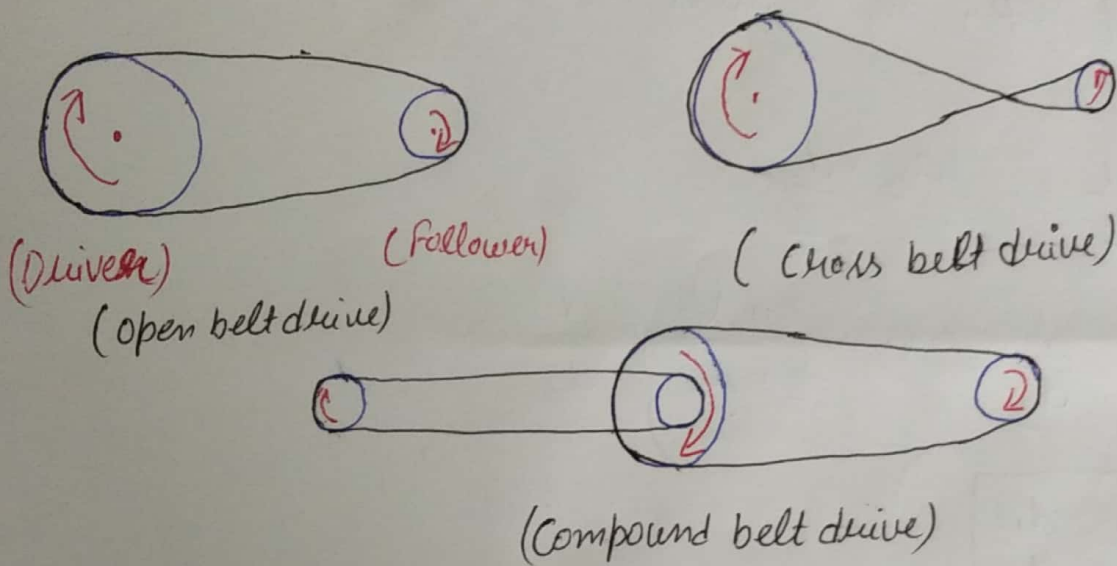 (Driver)
(Follower)
(Open belt drive)
(Cross belt drive)
(Compound belt drive)